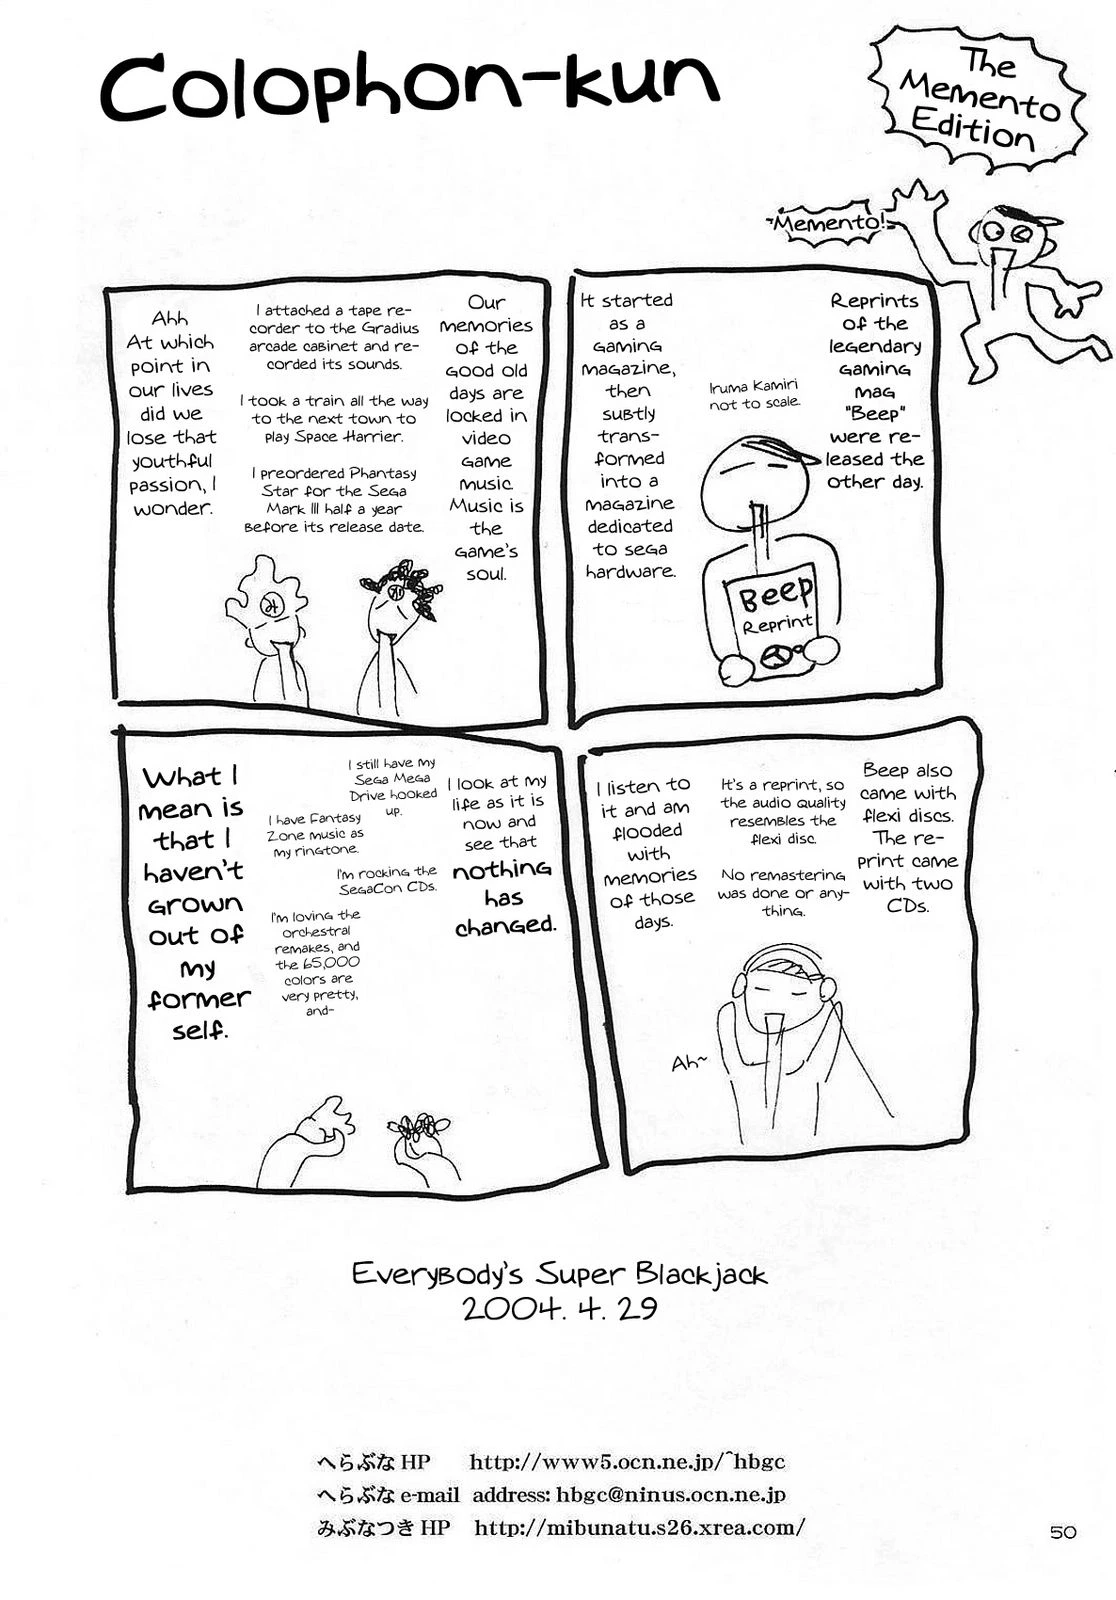 Colophon-kun
The
Memento
Edition
~Memento!
Reprints
of the
legendary
gaming
mag
"Beep"
were re-
leased the
other day.
Iruma Kamiri
not to scale.
Beep
Reprint
It started
as a
gaming
magazine,
then
subtly
trans-
formed
into a
magazine
dedicated
to sega
hardware.
Beep also
came with
flexi discs.
The re-
print came
with two
CDs.
It's a reprint, so
the audio quality
resembles the
flexi disc.
No remastering
was done or any-
thing.
I listen to
it and am
flooded
with
memories
of those
days.
Ah~
Our
memories
of the
good old
days are
locked in
video
game
music.
Music is
the
game's
soul.
I attached a tape re-
corder to the Gradius
arcade cabinet and re-
corded its sounds.
I took a train all the way
to the next town to
play Space Harrier.
I preordered Phantasy
Star for the Sega
Mark III half a year
before its release date.
Ahh
At which
point in
our lives
did we
lose that
youthful
passion, I
wonder.
I look at my
life as it is
now and
see that
nothing
has
changed.
I still have my
Sega Mega
Drive hooked
up.
I have Fantasy
Zone music as
my ringtone.
I'm rocking the
SegaCon CDs.
I'm loving the
orchestral
remakes, and
the 65,000
colors are
very pretty,
and-
What I
mean is
that I
haven't
grown
out of
my
former
self.
Everybody's Super Blackjack
2004. 4. 29
へらぶな HP http://www5.ocn.ne.jp/~hbgc
へらぶな e-mail address: hbgc@ninus.ocn.ne.jp
みぶなつき HP http://mibunatu.s26.xrea.com/
50